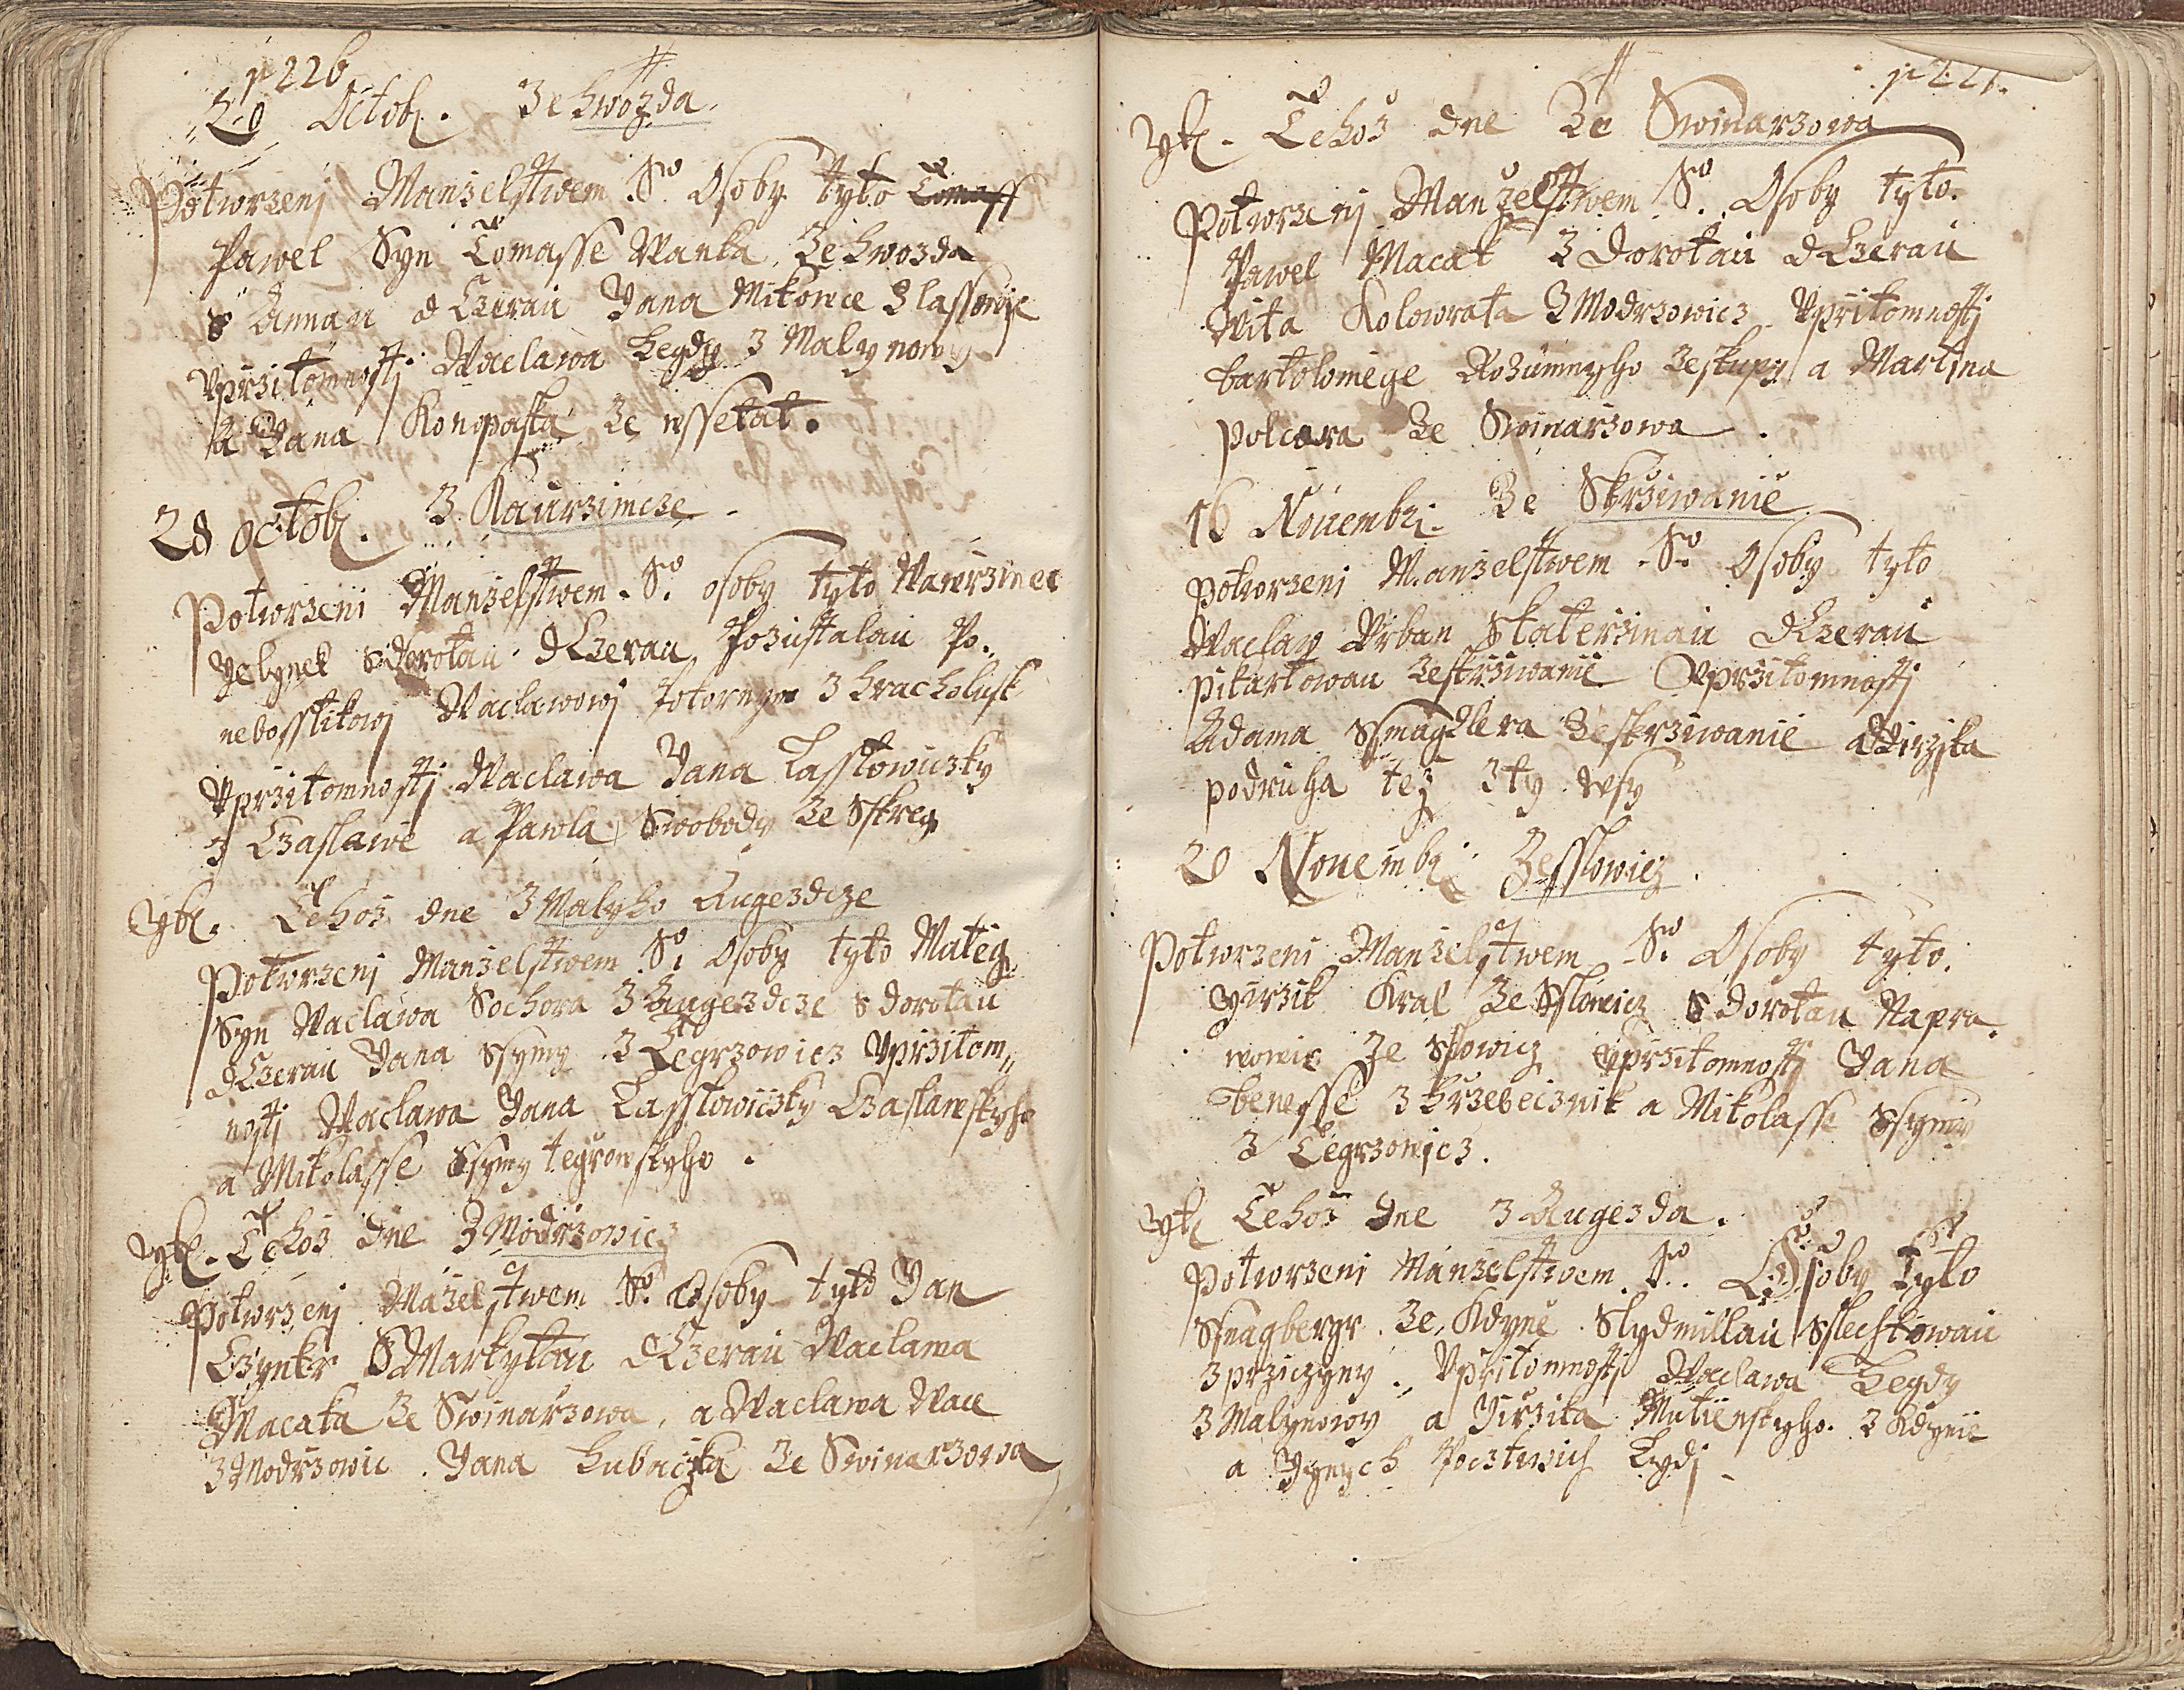 p 226
20 Octob. Zehwozda
Potwrzenj Manzelstwem S. Osoby tyto Tomass
Pawel Syn Tomasse Wanka, Zehwozda
s Annau dCzerau Jana Mikowce Zlassowic
Vprzitomnosti Waclawa Hegdy z Malynowy
a Jana Konopaska Ze wssekat.
28 octob. Z Kaurzimcze
Potwrzeni Manzelstwem S. osoby tyto Wawrzinec
Jelynek sdorotau dCzerau Pozustalau Po.
nebosstikowj Waclawowj Potornym z hracholusk
Vprzitomnostj Waclawa Jana Lasstowiczky
z Czaslawe a Pawla Swobody Ze Skrey
Tehoz dne Z Malyho Augezdcze
Potwrzenj Manzelstwem S. Osoby tyto Mateg
Syn Waclawa Sochora Z Augezdcze s dorotau
dCzerau Jana Ssymy Z Tegrzowicz Vprzitom„
nostj Waclawa Jana Lasstowiczky Czaslawskyho
a Mikolasse Ssymy tegrowskyho.
Tehoz dne Z Modrzowicz
Potwrzenj Mazelstwem S. Osoby tyto Jan
Czynkr SMarkytau dCzerau Waclawa
Macaka Ze Swinarzowa, a Waclawa Wace
Z Modrzowic. Jana hubaczka Ze Swinarzowa
p 227.
Tehoz dne Ze Swinarzowa
Potwrzenj Manzelstwem S. Osoby tyto.
Pawel Macak Z Dorotau dCzerau
Wita Kolowrata Z Modrzowicz Vpritomnostj
bartolomege Rozumnyho Zeskupy a Martina
polcara Ze Swinarzowa.
16 Nouembr. Ze Skrziwanie
Potwrzeni Manzelstwem S. Osoby tyto
Waclaw Vrban Skaterzinau dCzerau
pikartowau Zeskrziwanie Vprzitomnostj
Adama Ssmagdlera Zeskrziwanie a Girzika
podruha tez zty wsy
20 Nouembr Zesslowicz.
Potwrzeni Manzelstwem S. Osoby tyto.
Yirzik Kral Ze Sslowicz S dorotau Napra.
wowic Ze Slowicz Vprzitomnostj Jana
benesse z hrzebecznik a Mikolasse Ssymy
Z Tegrzowicz.
Tehoz dne z Augezda.
Potwrzeni Manzelstwem S. Osoby Tyto
Ssnagbergr. Ze Kdyne Slydmillau Sslechtowau
Zprziczyny. Vpritomnostj Waclawa Hegdy
Z Malynowy a Jirzika Mutienskyho. Z Kdynie
a Jynych Pocztiwich Lydj